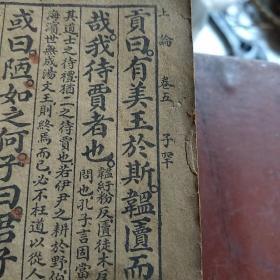 上論 卷五 子罕
貢曰。有美玉於斯。韞匵而
哉。我待賈者也。
韞紆粉反匵徒木反
問也孔子言固當
其道士之待禮猶玉之待賈也若伊尹之耕於野伯
海濱世無成湯文王則終焉而已必不枉道以從人
或曰。陋。如之何。子曰。君子